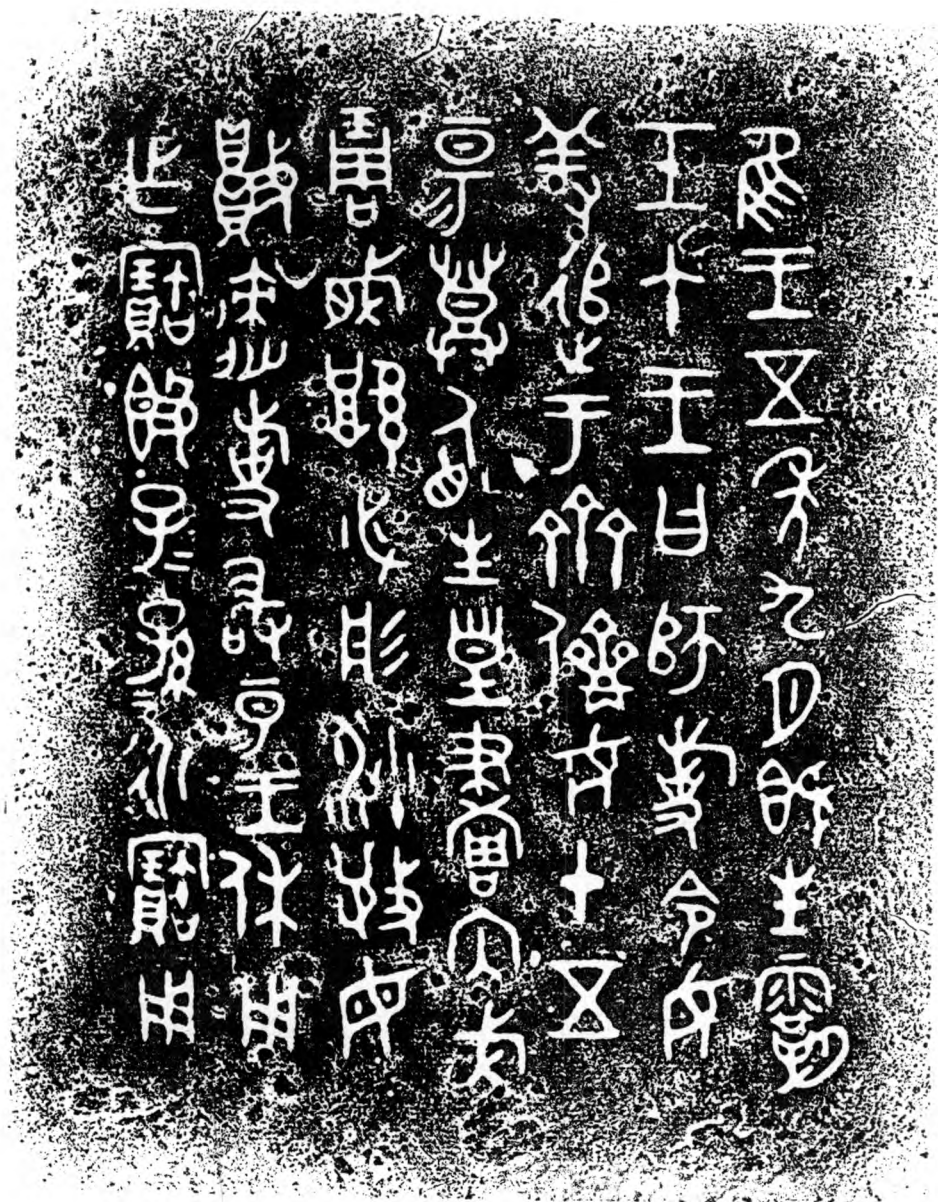 隹王五年九月既生霸
壬午王曰師旋令女
羞追于齊儕女十五
昜登盾生皇畫內戈
琱㦸𣪕必彤沙敬毋
敗速旋敢昜王休用
乍寶𣪘子=孫=永寶用